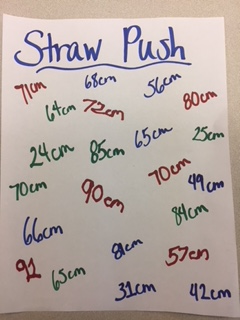 Straw Push
71cm 68cm 56cm
64cm 72cm 80cm
24cm 85cm 65cm 25cm
70cm 90cm 70cm 49cm
66cm 84cm
92 65cm 57cm
31cm 42cm